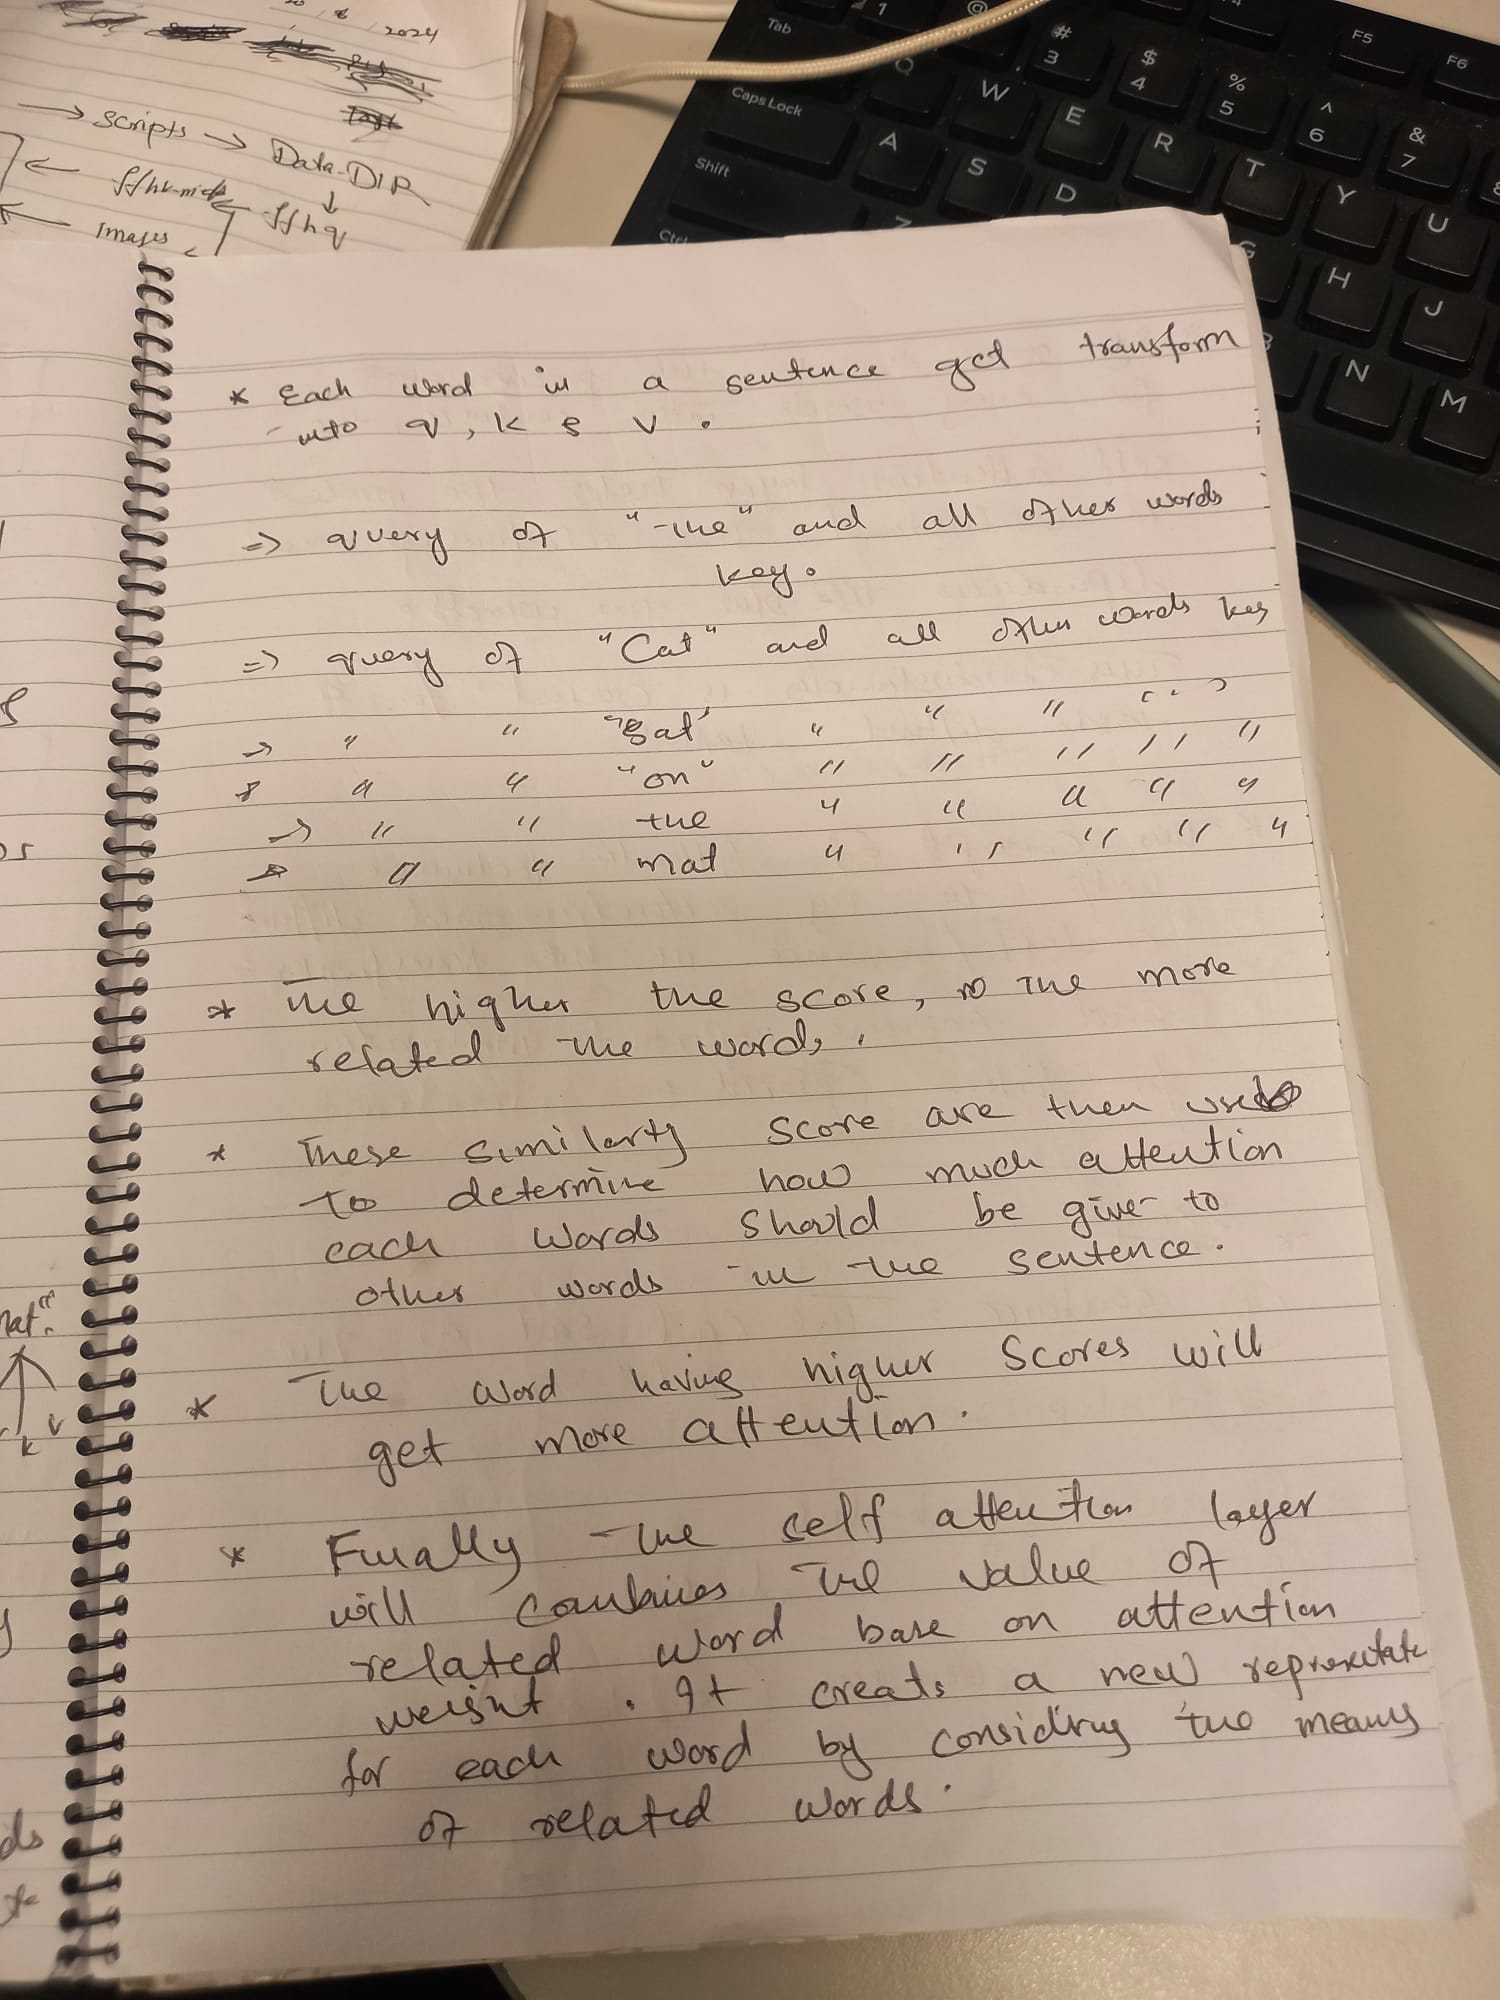 2024
→ scripts → Data-DIR
↓
ffhq
←
← Images
Tab
Caps Lock
Shift
Ctrl
1
@
#
3
$
4
%
5
^
6
&
7
F4
F5
F6
Q W E R T Y U
A S D G H J
Z N M
* Each word in a sentence get transform
into q, k & v.
⇒ query of "the" and all other words
key.
⇒ query of "Cat" and all other words key
→ " " "Sat" " " "
→ " " "on" " " " " "
→ " " the " " " " "
→ " " mat " " " " "
* The higher the score, the more
related the words.
* These similarty score are then used
to determine how much attention
each words should be given to
other words in the sentence.
* The word having higher scores will
get more attention.
* Finally the self attention layer
will combines the value of
related word base on attention
weight. It creats a new representate
for each word by considring the meaning
of related words.
mat".
k v
ds